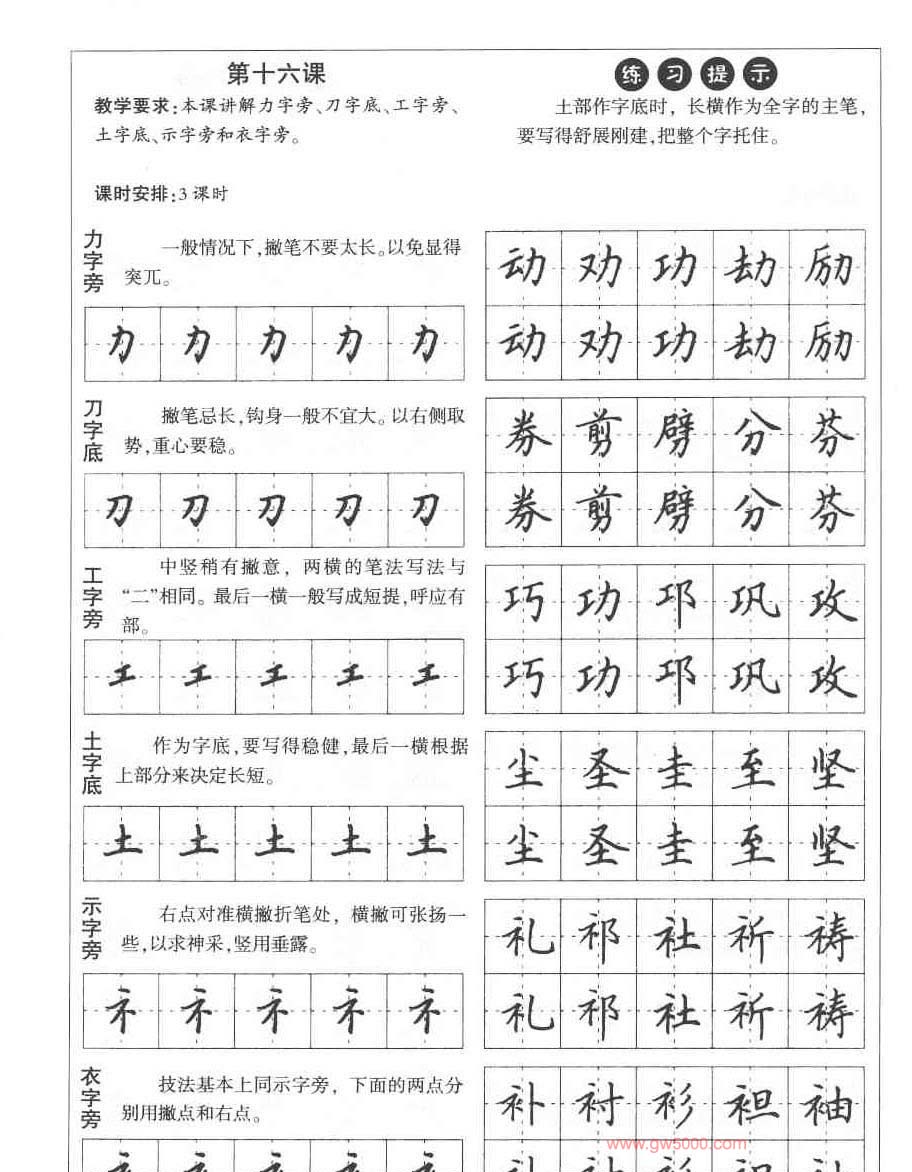 第十六课
教学要求:本课讲解力字旁、刀字底、工字旁、
土字底、示字旁和衣字旁。
课时安排:3课时
练习提示
土部作字底时，长横作为全字的主笔，
要写得舒展刚建,把整个字托住。
力字旁
一般情况下,撇笔不要太长。以免显得
突兀。
力力力力力
动劝功劫励
动劝功劫励
刀字底
撇笔忌长,钩身一般不宜大。以右侧取
势,重心要稳。
刀刀刀刀刀
券剪劈分芬
券剪劈分芬
工字旁
中竖稍有撇意，两横的笔法写法与
“二”相同。最后一横一般写成短提,呼应有
部。
工工工工工
巧功邛巩攻
巧功邛巩攻
土字底
作为字底,要写得稳健,最后一横根据
上部分来决定长短。
土土土土土
尘圣圭至坚
尘圣圭至坚
示字旁
右点对准横撇折笔处，横撇可张扬一
些,以求神采,竖用垂露。
礻礻礻礻礻
礼祁社祈祷
礼祁社祈祷
衣字旁
技法基本上同示字旁，下面的两点分
别用撇点和右点。
补衬衫袒袖
www.gw5000.com